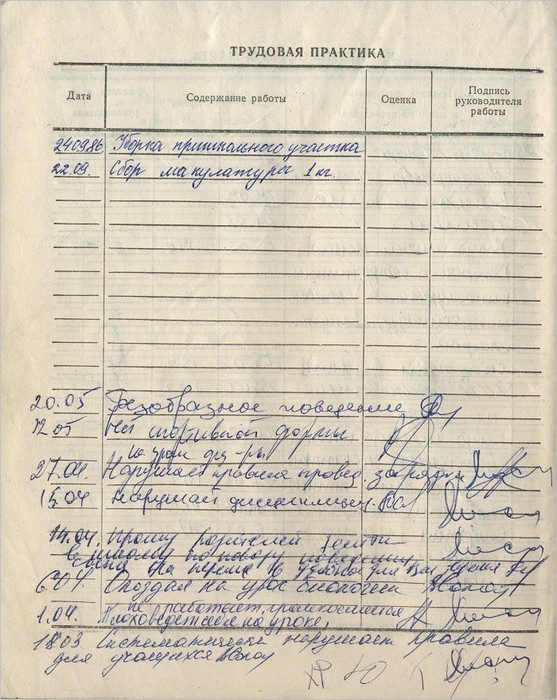 ТРУДОВАЯ ПРАКТИКА
Дата Содержание работы Оценка Подпись руководителя работы
240986 Уборка пришкольного участка
22.09. Сбор макулатуры 1 кг.
20.05 Безобразное поведение
12 05 Нет спортивной формы
на урок физ-ры
27.04. Нарушает правила провед. зарядки
15 04 Нарушает дисциплину
14.04. Прошу родителей зайти
в школу по поводу поведения
6 04 Опоздал на урок биологии
не работает,
1.04. Плохо ведет себя на уроке,
18 03 Систематически нарушает правила
для учащихся